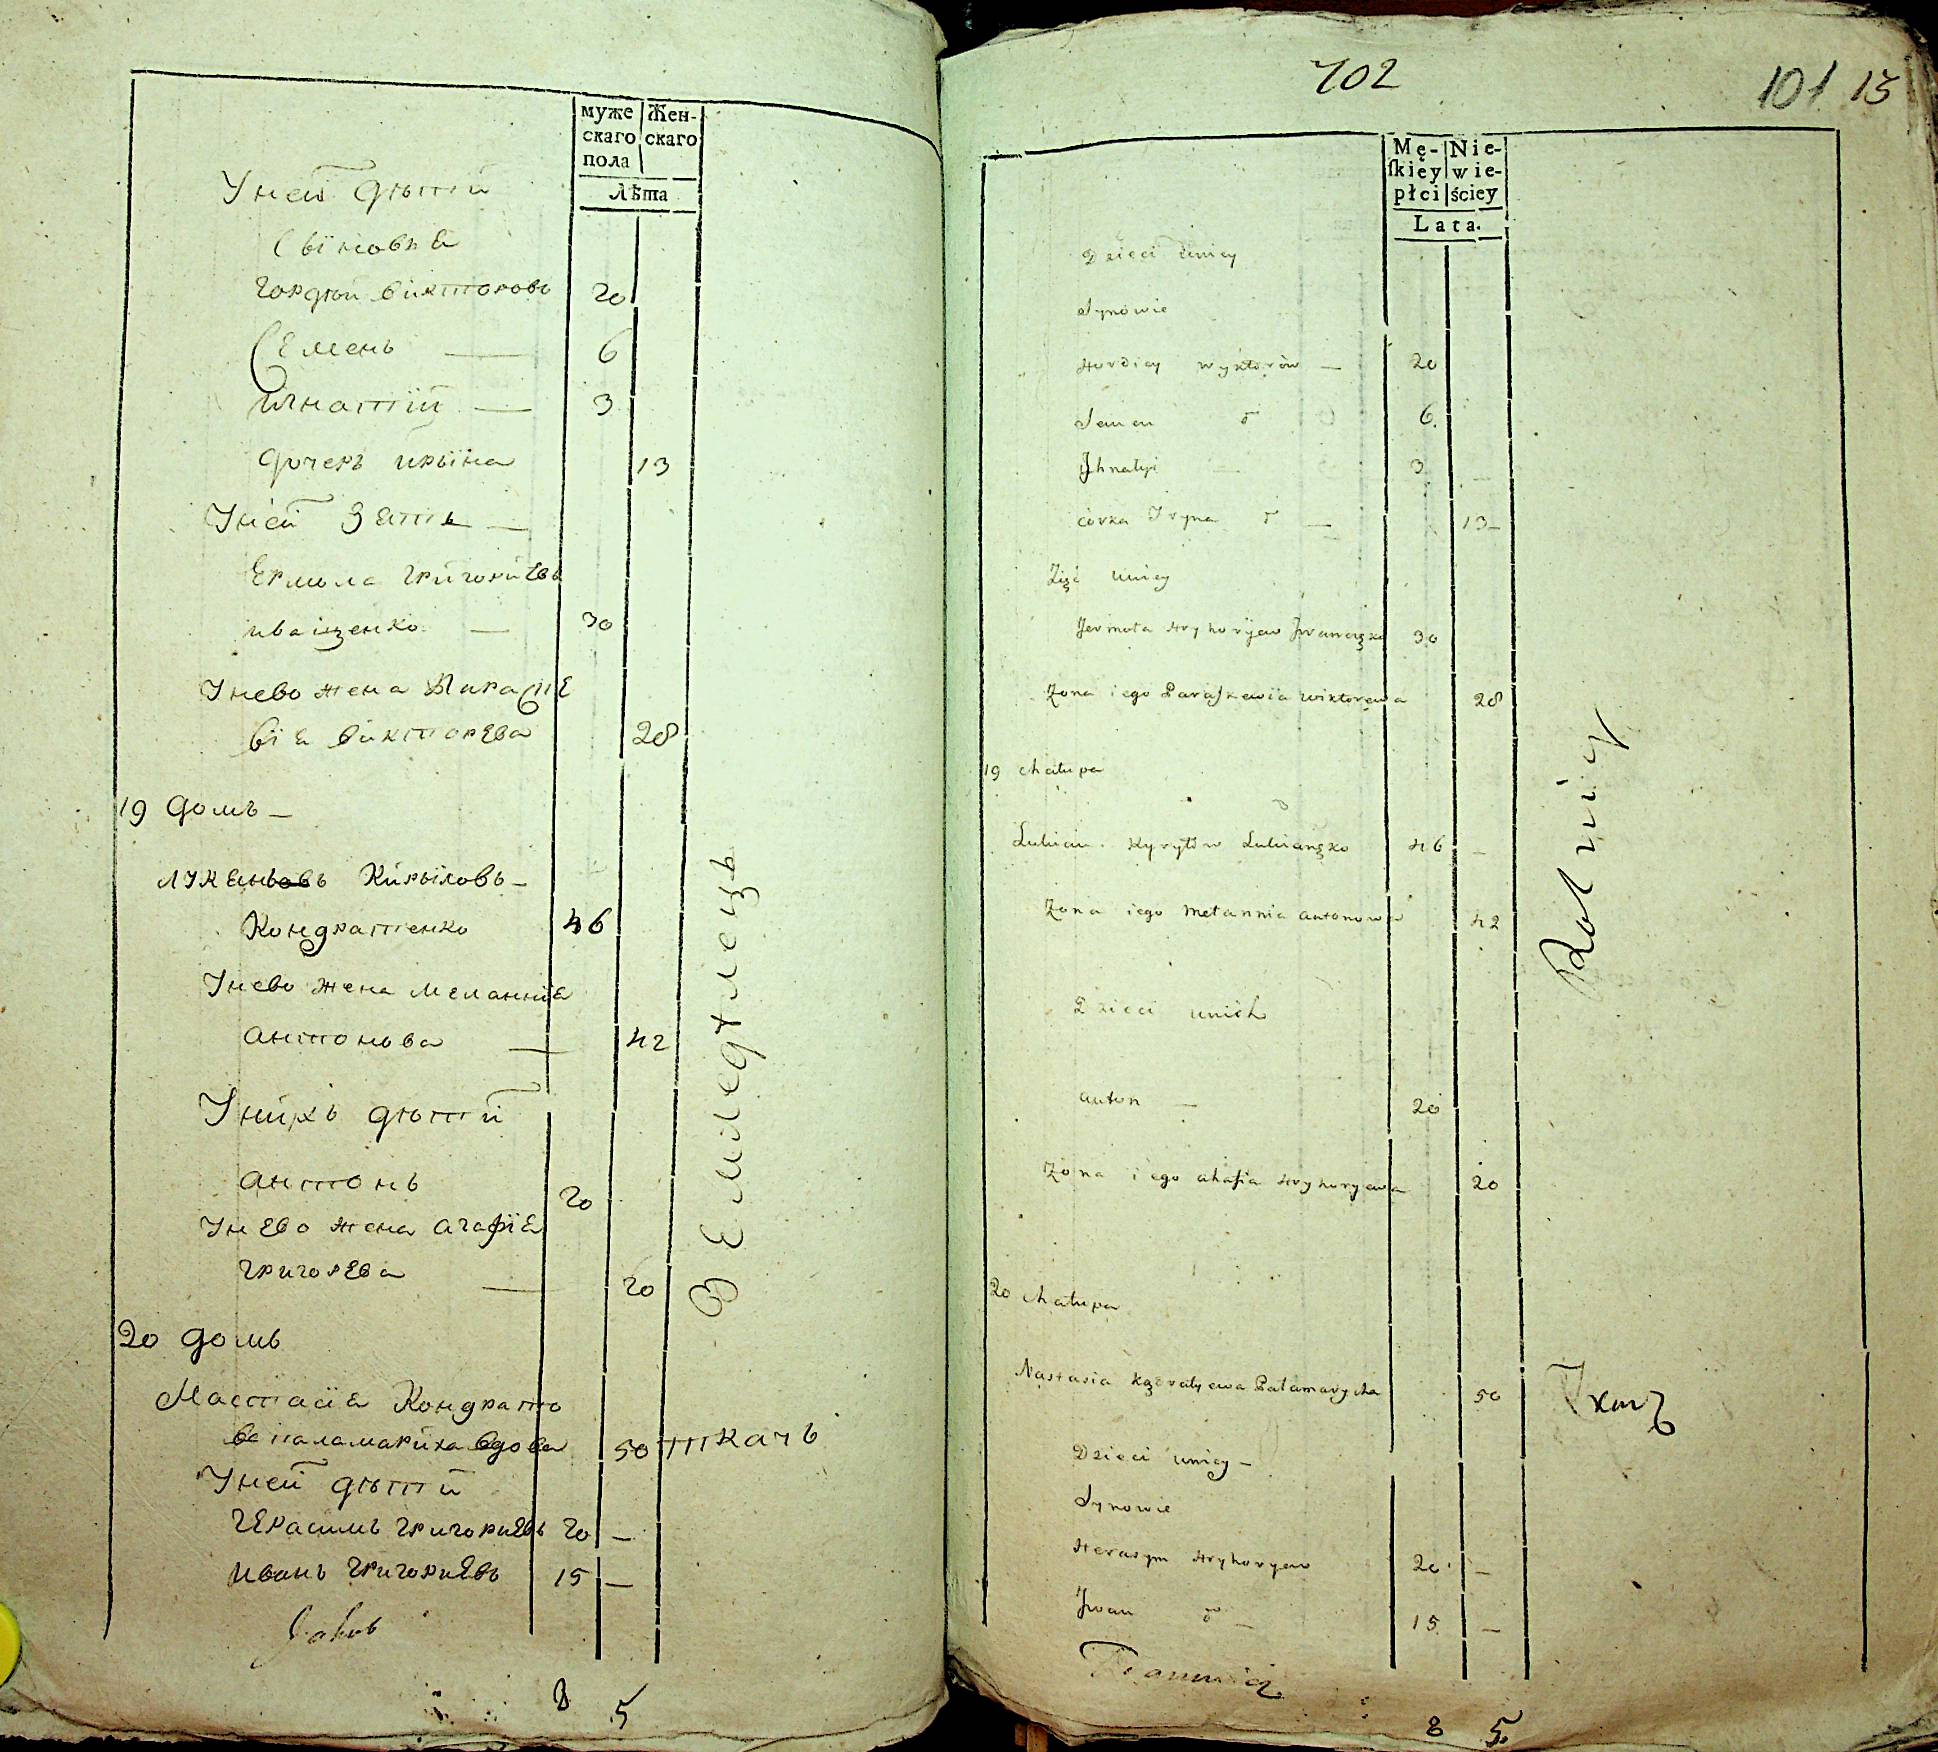 муже Жен-
скаго скаго
пола
Лѣта
Уней дѣтий
Сыновья
Гордѣй Викторовъ 20
Семенъ — 6
Игнатий — 3
Дочеръ Ирына 13
Уней Зять —
Ермола Григориевъ
Иващенко — 30
Унево жена Параске
вія Викторева 28
19 домъ —
Лукьянъ Кирыловъ —
Кондратенко 46
Унево жена Меланния
Антонова — 42
Унихъ дѣтий
Антонъ 20
Унево жена Агафия
Григорева — 20
Земледѣлецъ
20 домъ
Настасия Кондрато
ва паламариха вдова 50 ткачъ
Уней дѣтий
Герасимъ Григориевъ 20 —
Иванъ Григориевъ 15 —
Jakub
8 5
102
101 15
Mę- Nie-
ſkiey wie-
płci ściey
Lata.
Dzieci uniey
Synowie
Hordiey Wyktorów — 20
Semen 6.
Jhnatyi — 3
córka Iryna — 13 —
Zięć uniey
Jermoła Hryhoryiew Iwanięzko 30
Zona iego Paraſkewia Wiktorewa 28
19 Chałupa
Lukian Kyryłow Lukianęzko 46 —
Zona iego Mełannia Antonowa 42
Dzieci unich
Anton — 20
Zona iego Ahafia Hryhoryewa 20
Rolniy
20 Chałupa
Nastasia Kądratyewa Pałamarycha 50 Tkacz
Dzieci uniey —
Synowie
Herasym Hryhoryew 20 —
Jwan — 15 —
8 5